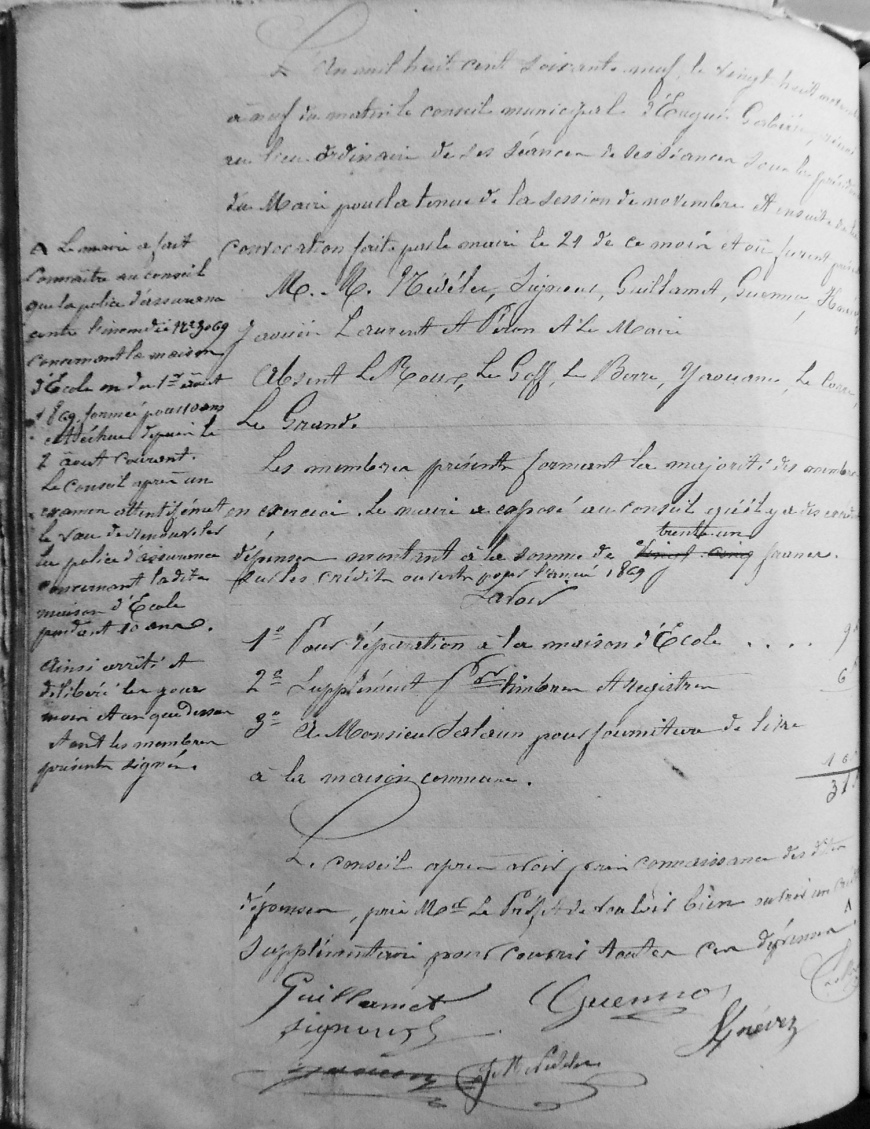 L'An mil huit cent soixante neuf, le vingt huit
à neuf du matin le conseil municipal d'Ergué Gabéric,
au lieu ordinaire de ses séances de ses séances sous la
du Maire pour la tenue de la session de novembre Et ensuite de la
convocation faite par le maire le 21 de ce mois et où furent
M. M. Nédélec, Signour, Guillamet, Guennou,
Jaouen Laurent et Péron et Le Maire
Absent Le Roux, Le Goff, Le Berre, Yaouanc, Le
Le Grand.
Les membres présents formant la majorité des membres
en exercice. Le maire a exposé au conseil qu'il y a des
trente un
dépenses montant à la somme de vingt cinq francs.
sur les crédits ouverts pour l'année 1869
Savoir
1º Pour réparation à la maison d'École . . . . 9
2º Supplément pr timbres et registres 6
3º à Monsieur Salaun pour fourniture de livre
à la maison commune. 16
31
Le conseil après avoir pris connaissance des dites
dépenses, prie Monsr Le Préfet de vouloir bien ouvrir un
supplémentaire pour couvrir toutes ces dépenses A
Guillamet Guennou
Signour
Jaouen
A Le maire a fait
connaître au conseil
que la police d'assurance
contre l'incendie Nº 3069
concernant la maison
d'École en du 1er août
1869, formée pour 10 ans
est déchue depuis le
2 août courant.
Le Conseil après un
examen attentif émet
le vœu de renouveler
la police d'assurance
concernant la dite
maison d'École
pendant 10 ans.
Ainsi arrêté et
délibéré les jour
mois et an que dessus
et ont les membres
présents signé.